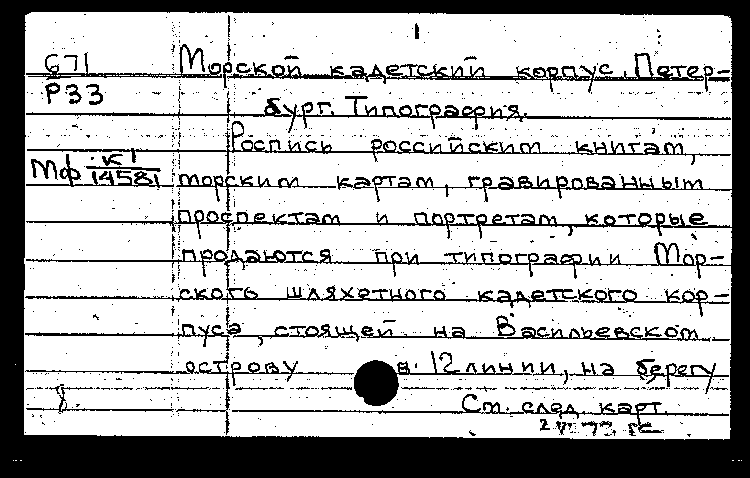 1
671 Морской кадетский корпус. Петер-
Р33 бург. Типография.
Роспись российским книгам,
Мф К1/14581 морским картам, гравированным
проспектам и портретам, которые
продаются при типографии Мор-
скогь шляхетного кадетского кор-
пуса, стоящей на Васильевском
острову в 12 линии, на берегу
8. См. след. карт.